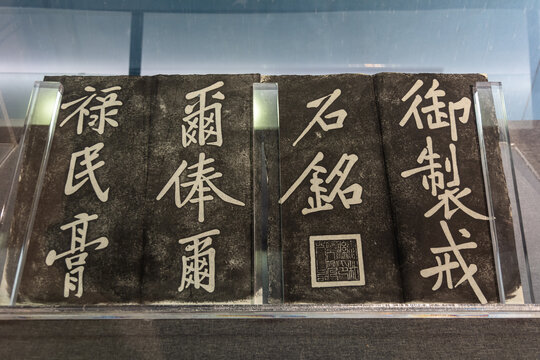 御製戒
石銘
爾俸爾
祿民膏